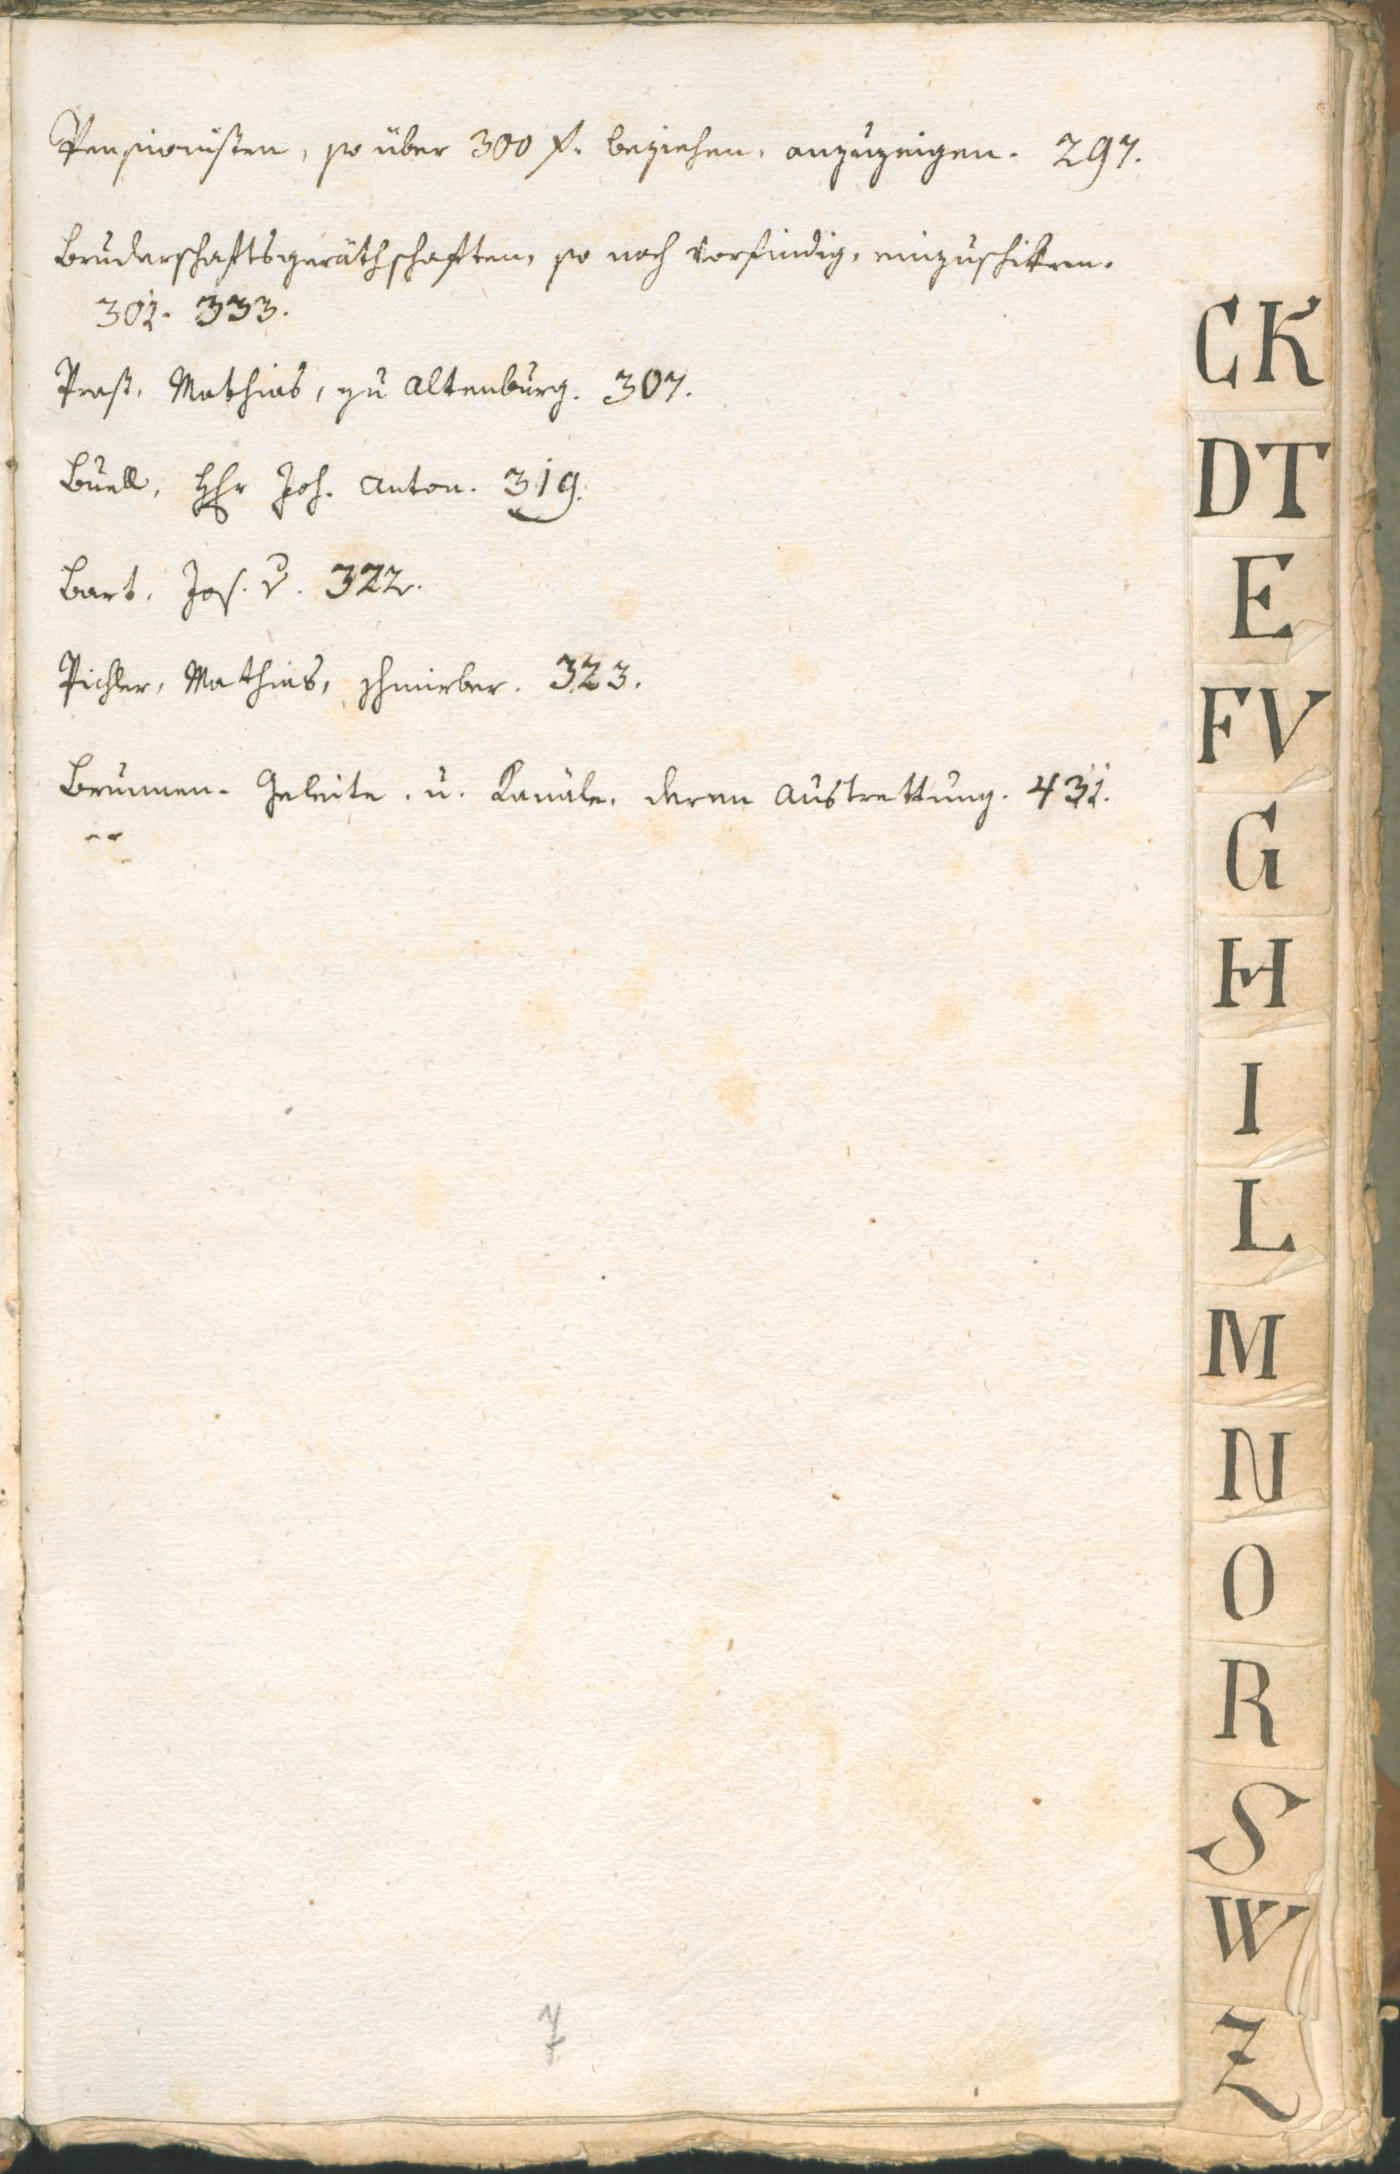 Pensionisten, so über 300 f. beziehen, anzuzeigen. 297.
Bruderschaftsgeräthschaften, so noch vorfindig, einzuschiken.
302. 333.
Prast, Mathias, zu Altenburg. 307.
Buell, Joh. Anton. 319.
Bart, Jos. 322.
Pichler, Mathias, 323.
Brunnen- Geleite. u. Kanäle, deren Austrettung. 431.
CK
DT
E
FV
G
H
I
L
M
N
O
R
S
W
Z
7